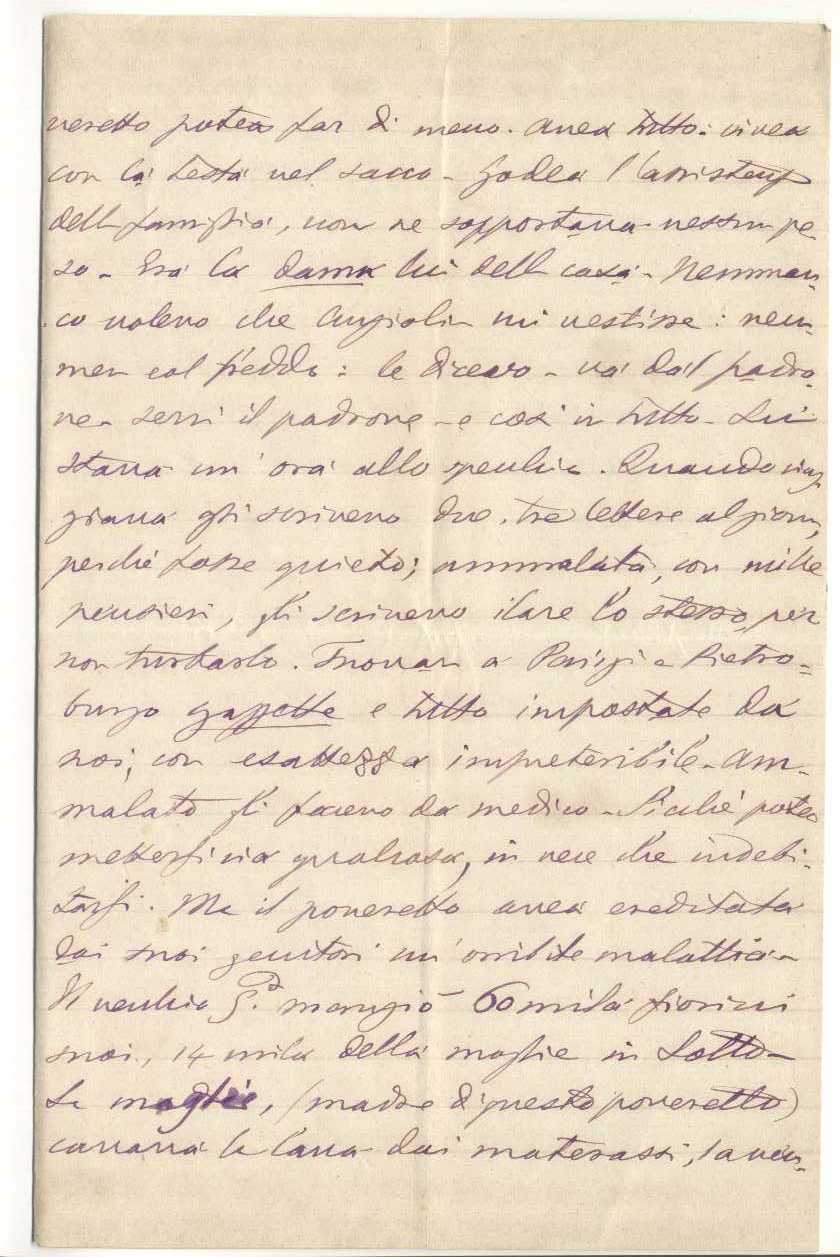 veretto potea far di meno. Avea tutto: vivea
con la testa nel sacco - Godea l'assistenza
della famiglia, non ne sopportava nessun pe-
so - Era la dama lui della casa - Nemman-
co volevo che Angiolin mi vestisse: nem-
men col freddo: le dicevo - va dal padro-
ne - servi il padrone - e così in tutto - Lui
stava un'ora allo specchio. Quando viag-
giava gli scrivevo due, tre lettere al giorno,
perché fosse quieto; ammalata, con mille
pensieri, gli scrivevo ilare lo stesso, per
non turbarlo. Trovava a Parigi e Pietro-
burgo gazzette e tutto impostate da
noi, con esattezza impreteribile - Am-
malato gli facevo da medico - Sicché potea
mettersi via qualcosa, in vece che indebi-
tarsi. Ma il poveretto avea ereditata
dai suoi genitori un'orribile malattia -
Il vecchio G.d mangiò 60 mila fiorini
suoi, 14 mila della moglie in Lotto -
La moglie, (madre di questo poveretto)
cavava la lana dai materassi, la ven-